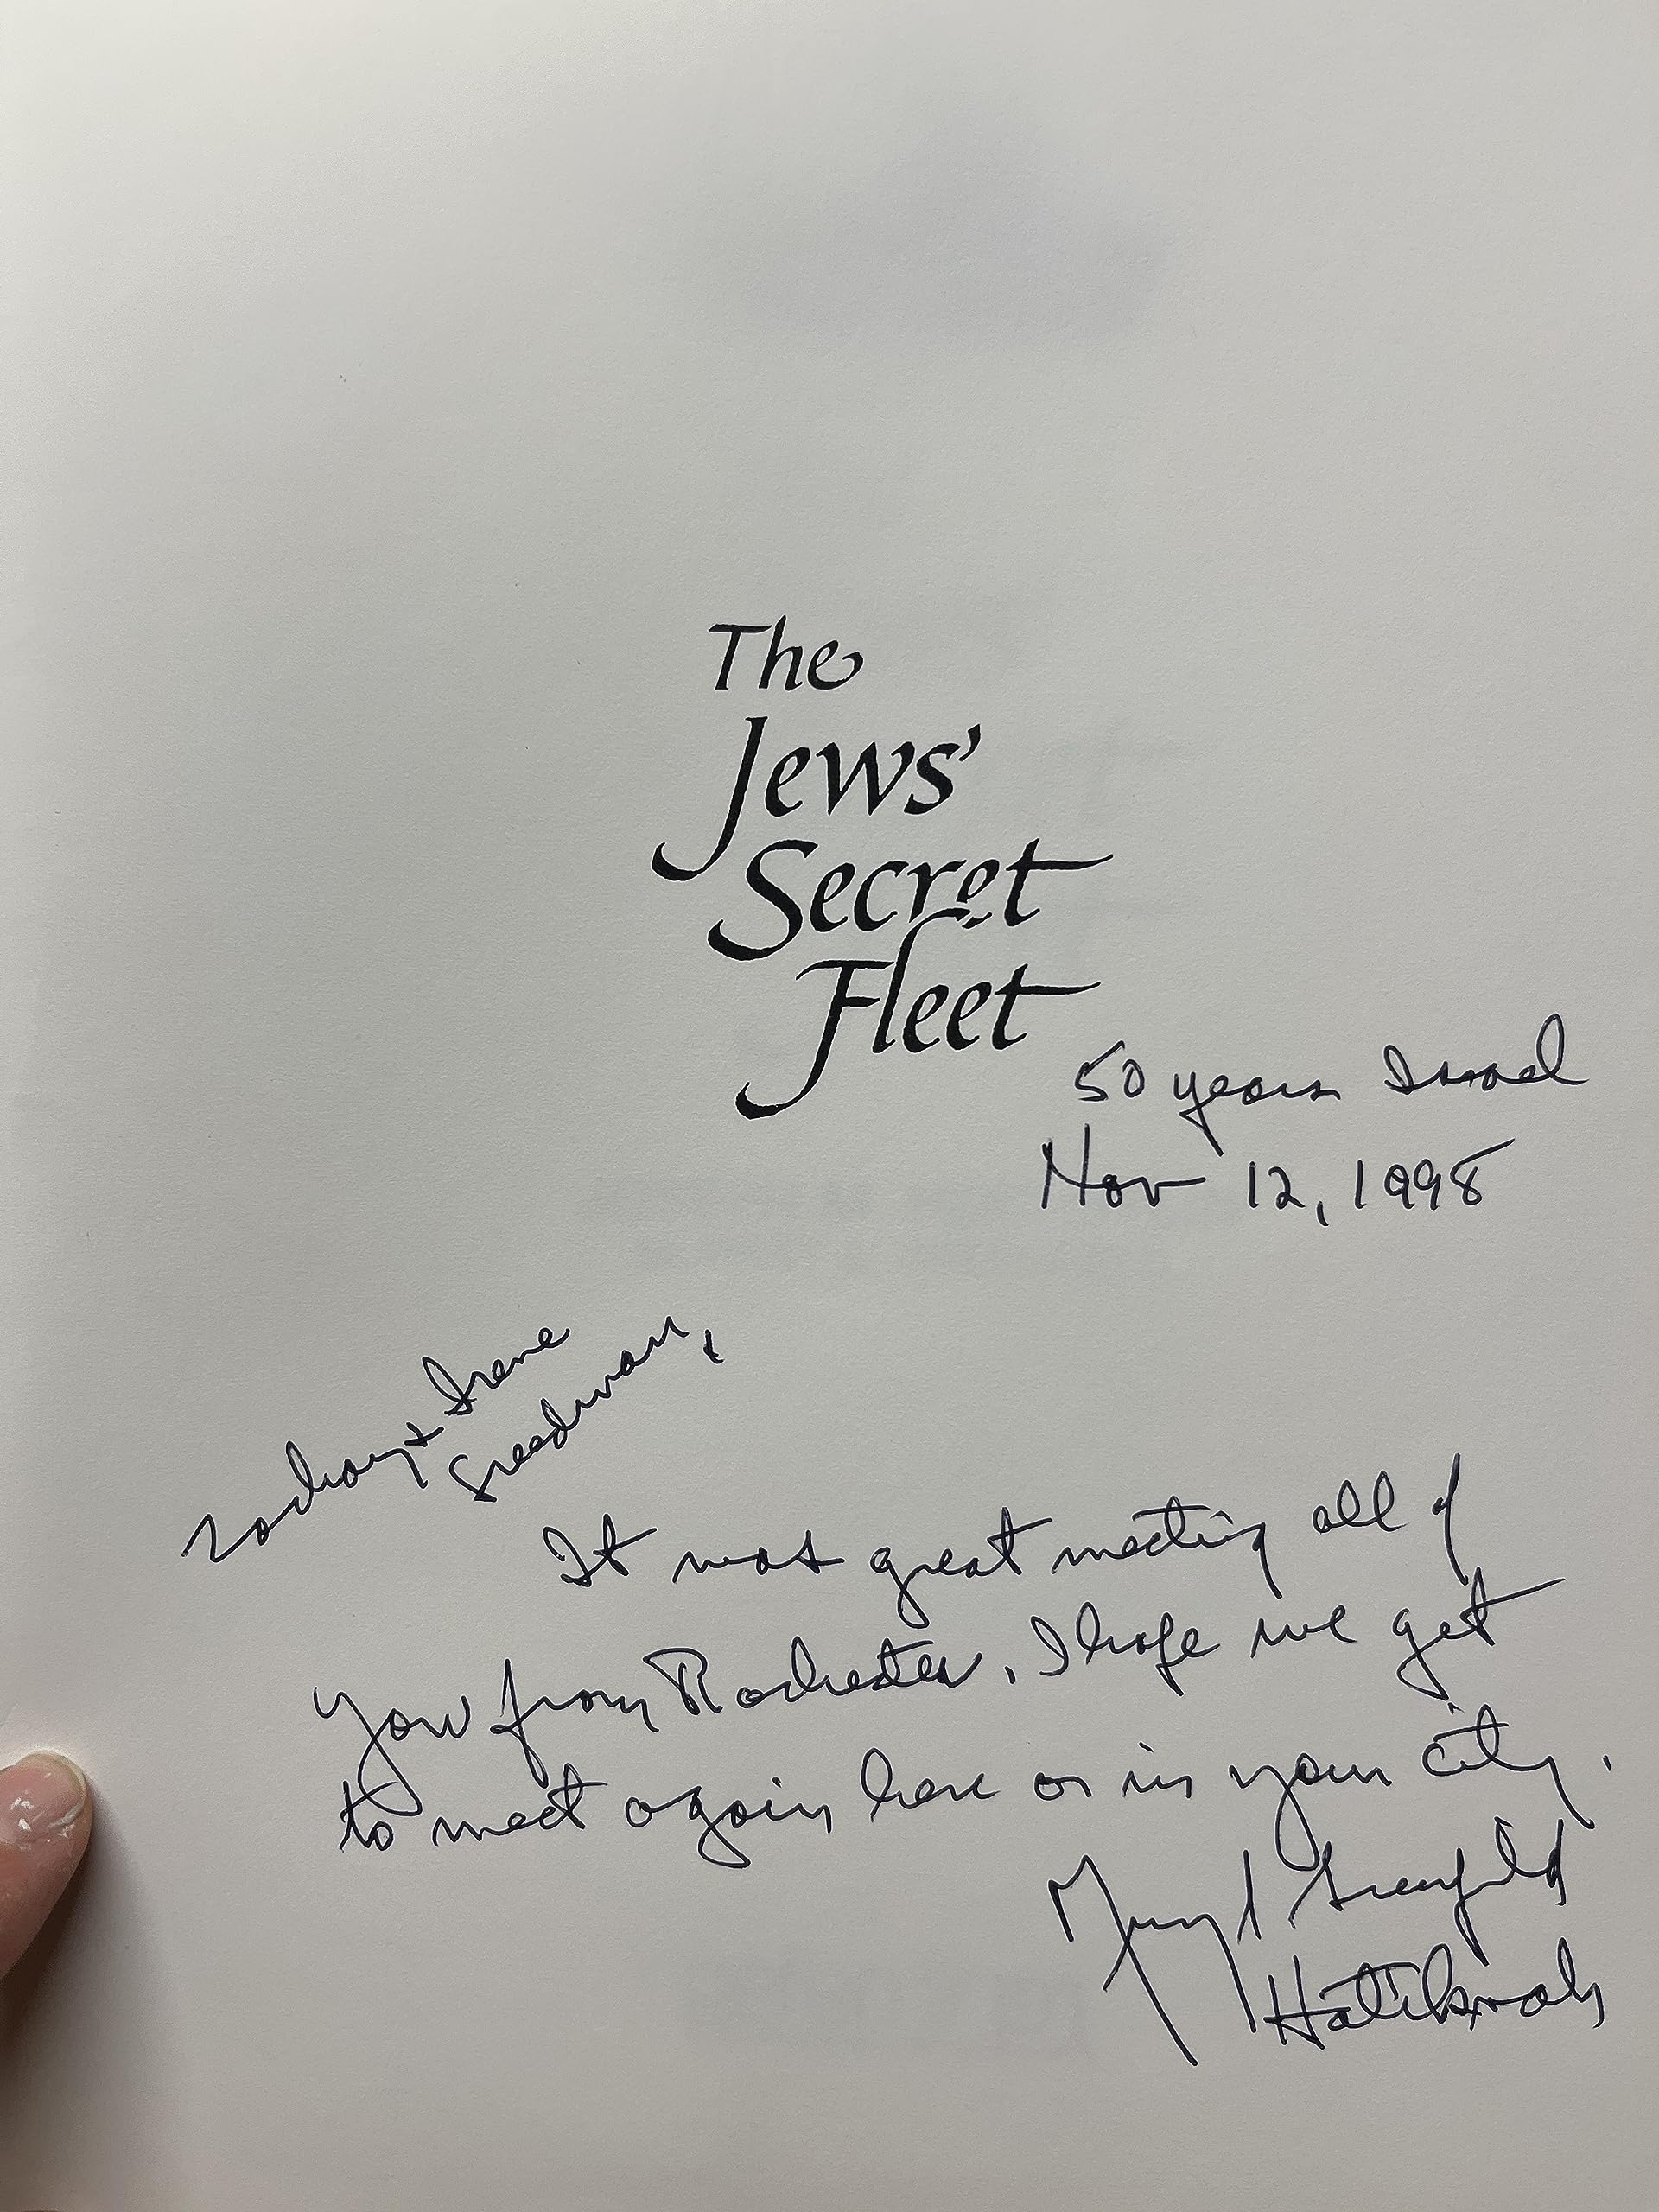 The
Jews'
Secret
Fleet
50 years Israel
Nov 12, 1998
Zachary & Irene
Freedman,
It was great meeting all of
you from Rochester. I hope we get
to meet again here or in your city.
Murray S Greenfield
Hatikvah